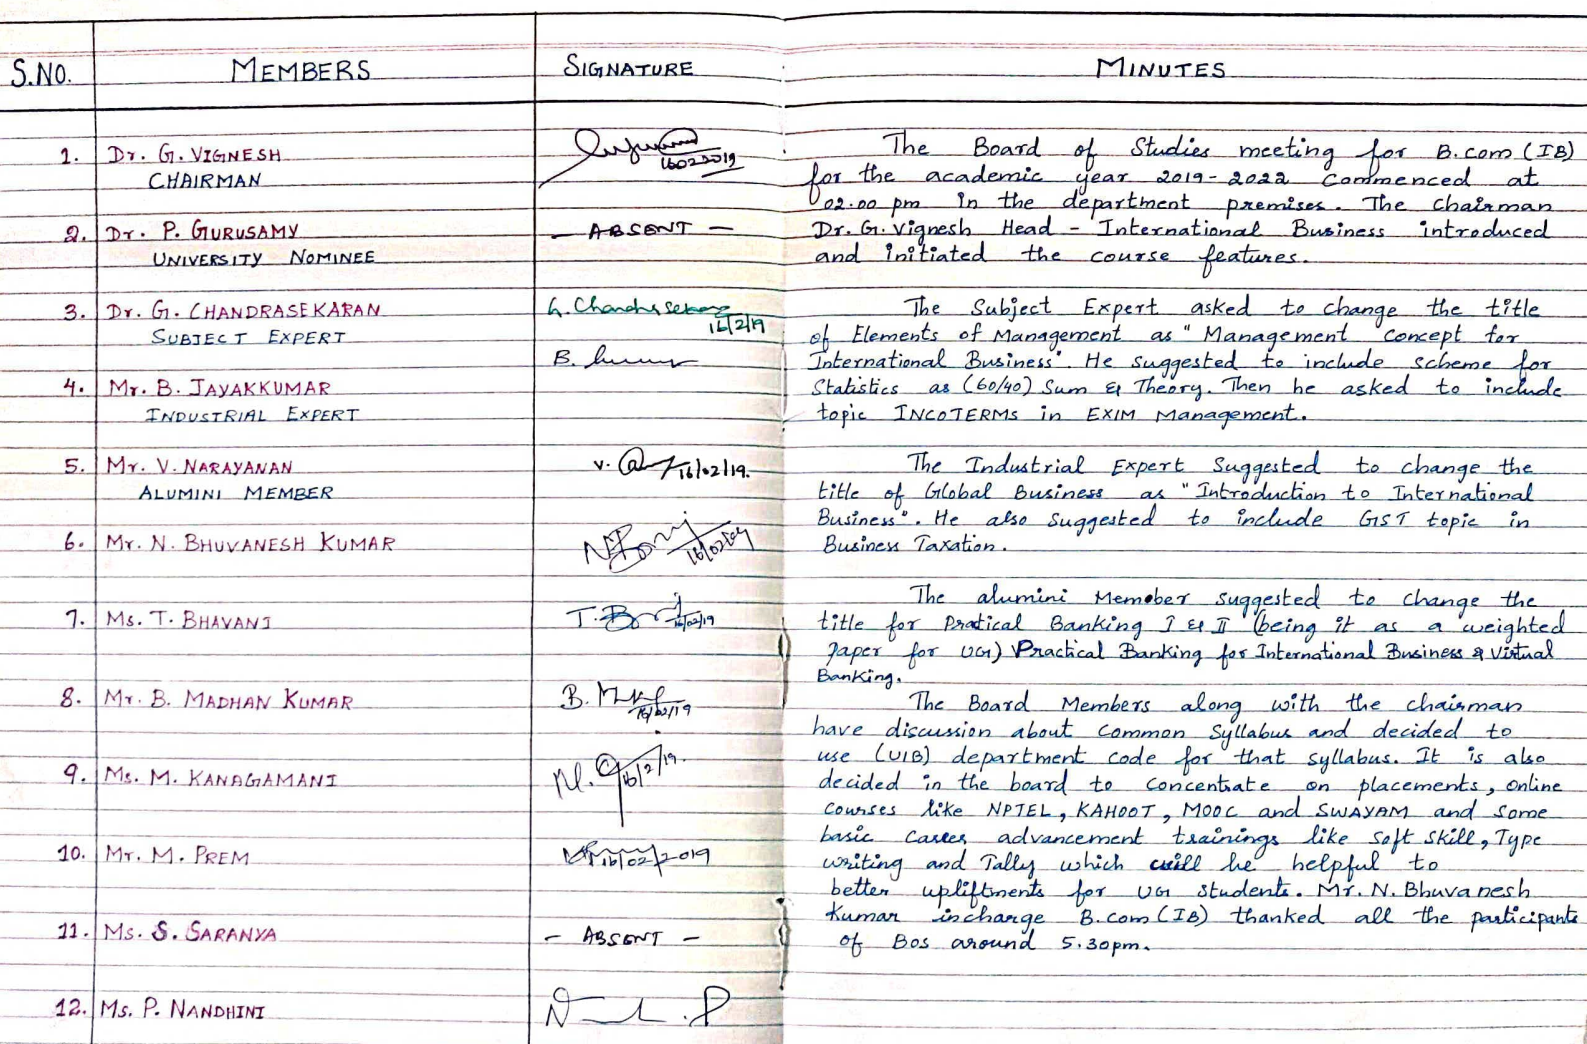 S.NO. MEMBERS SIGNATURE MINUTES
1. Dr. G. VIGNESH
CHAIRMAN
16022019
2. Dr. P. GURUSAMY - ABSENT -
UNIVERSITY NOMINEE
3. Dr. G. CHANDRASEKARAN G. Chandrasekaran
SUBJECT EXPERT 16/2/19
B.
4. Mr. B. JAYAKKUMAR
INDUSTRIAL EXPERT
5. Mr. V. NARAYANAN V. 16/02/19.
ALUMINI MEMBER
6. Mr. N. BHUVANESH KUMAR
7. Ms. T. BHAVANI T. 16/02/19
8. Mr. B. MADHAN KUMAR B. 16/02/19
9. Ms. M. KANAGAMANI M. 16/2/19.
10. Mr. M. PREM 16/02/2019
11. Ms. S. SARANYA - ABSENT -
12. Ms. P. NANDHINI
The Board of Studies meeting for B.com (IB)
for the academic year 2019-2022 commenced at
02.00 pm in the department premises. The chairman
Dr. G. Vignesh Head - International Business introduced
and initiated the course features.
The Subject Expert asked to change the title
of Elements of Management as "Management Concept for
International Business". He suggested to include scheme for
Statistics as (60/40) Sum & Theory. Then he asked to include
topic INCOTERMS in EXIM Management.
The Industrial Expert Suggested to change the
title of Global Business as "Introduction to International
Business". He also suggested to include GST topic in
Business Taxation.
The alumini Memober suggested to change the
title for Pratical Banking I & II (being it as a weighted
Paper for UG) Practical Banking for International Business & Virtual
Banking.
The Board Members along with the chairman
have discussion about Common Syllabus and decided to
use (UIB) department code for that syllabus. It is also
decided in the board to Concentrate on placements, online
courses like NPTEL, KAHOOT, MOOC and SWAYAM and some
basic Career advancement trainings like Soft Skill, Type
writing and Tally which will be helpful to
better upliftments for UG students. Mr. N. Bhuvanesh
Kumar incharge B.com (IB) thanked all the participants
of Bos around 5.30pm.